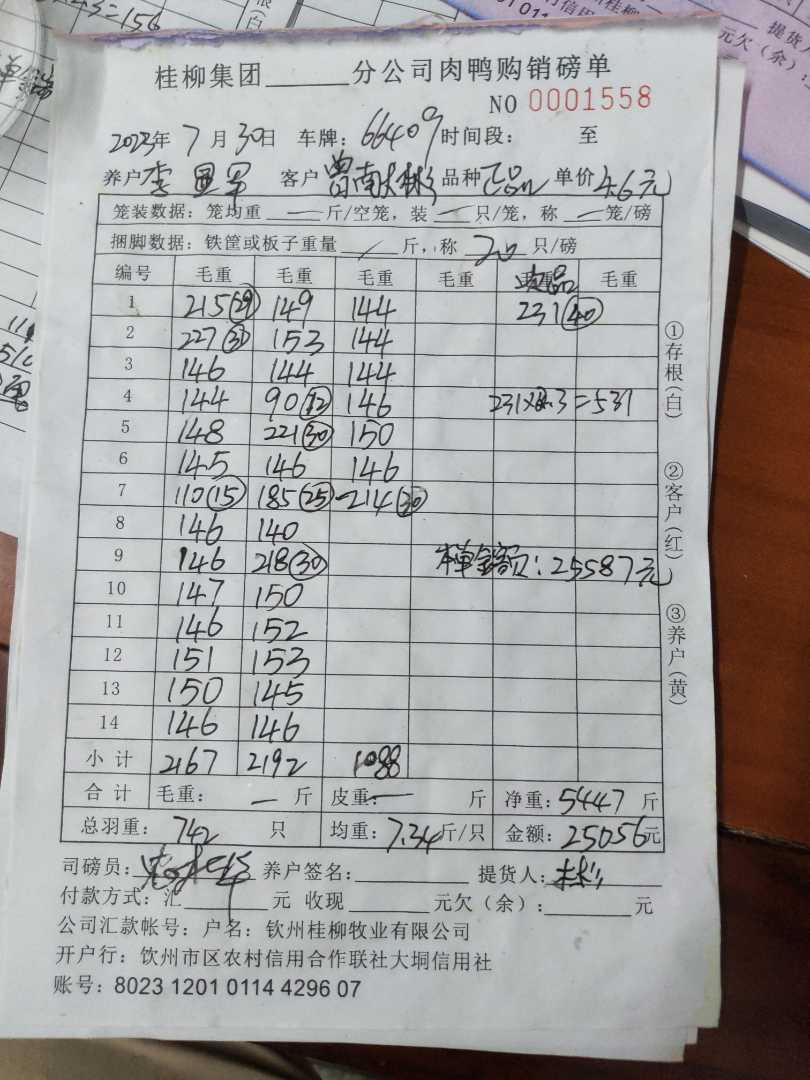 桂柳集团______分公司肉鸭购销磅单
NO 0001558
2023年 7 月 30日 车牌: 66409 时间段: 至
养户 李 客户 品种 正品 单价 4.6元
笼装数据: 笼均重 — 斤/空笼, 装 — 只/笼, 称 — 笼/磅
捆脚数据: 铁筐或板子重量 / 斤, 称 20 只/磅
编号 毛重 毛重 毛重 毛重 次品 毛重
1 215(29) 149 144 231(40)
2 227(31) 153 144
3 146 144 144
4 144 90(12) 146 231×2.3=531
5 148 221(30) 150
6 145 146 146
7 110(15) 185(25) 214(30)
8 146 140
9 146 218(30) 本单金额: 25587元
10 147 150
11 146 152
12 151 153
13 150 145
14 146 146
小计 2167 2192 1088
合计 毛重: — 斤 皮重: — 斤 净重: 5447 斤
总羽重: 742 只 均重: 7.34斤/只 金额: 25056元
司磅员: 养户签名: 提货人:
付款方式: 汇______元 收现______元欠(余):______元
公司汇款帐号: 户名: 钦州桂柳牧业有限公司
开户行: 钦州市区农村信用合作联社大垌信用社
账号: 8023 1201 0114 4296 07
①存根(白)
②客户(红)
③养户(黄)